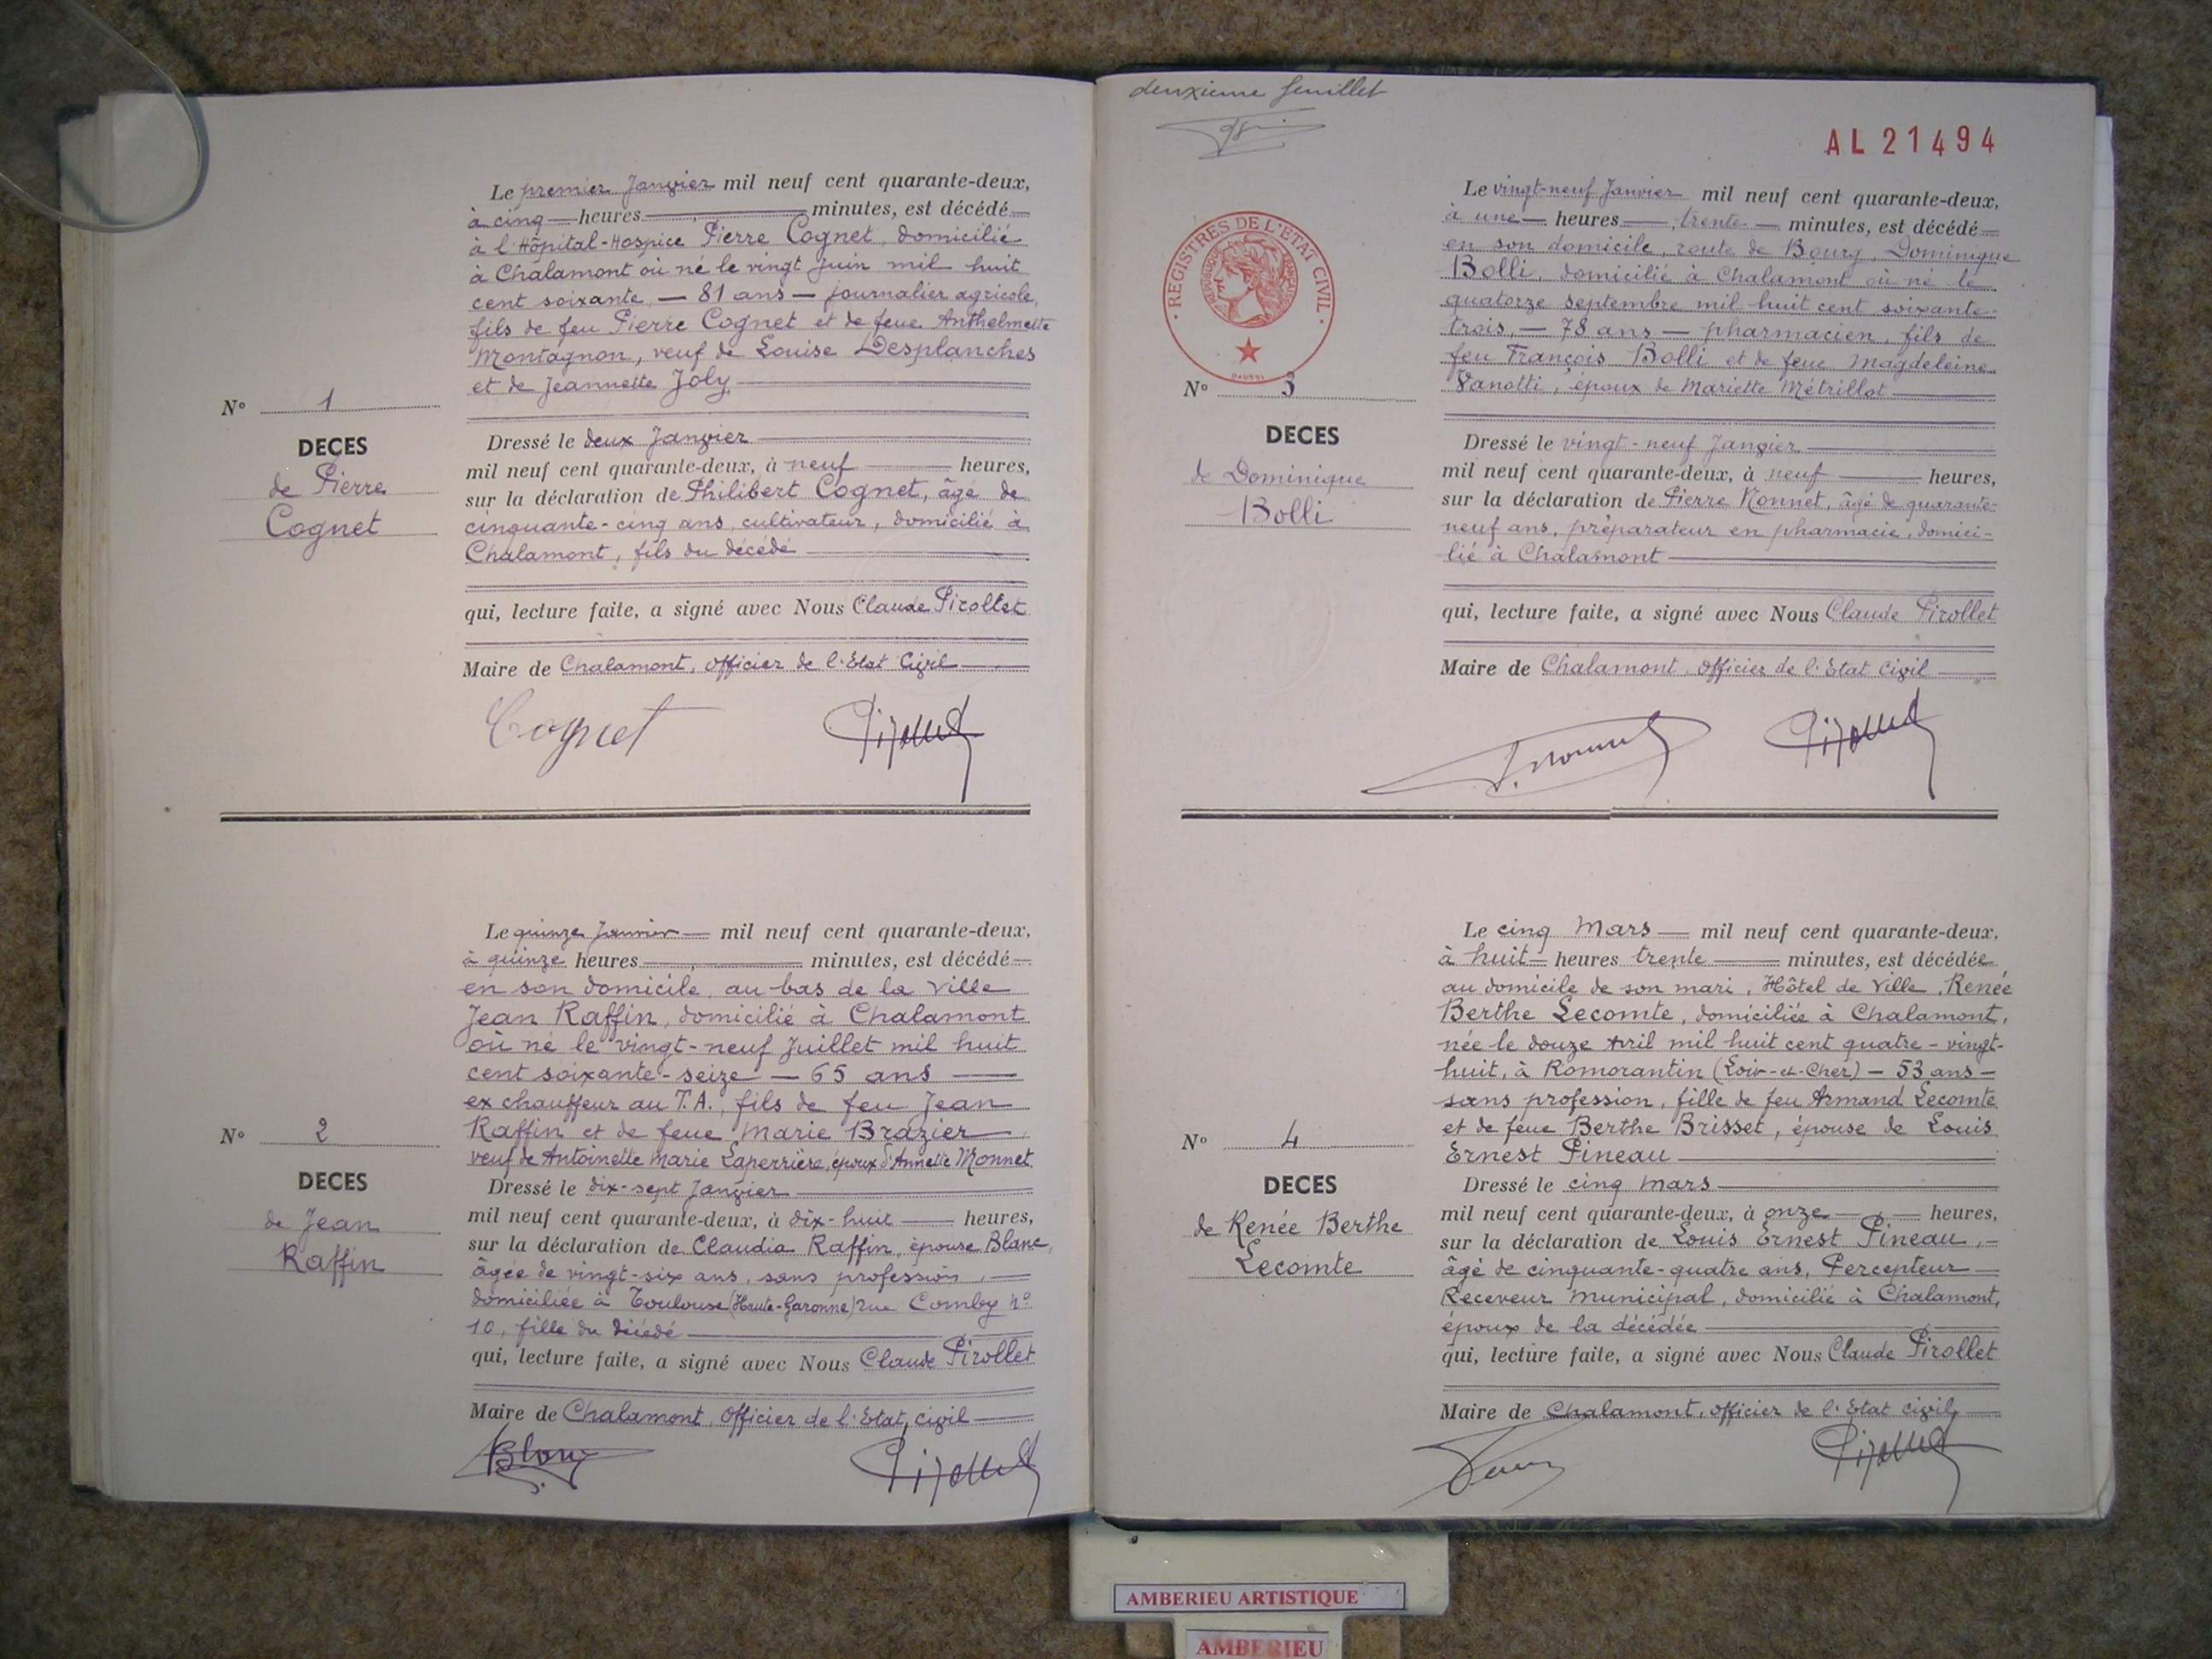 Le premier Janvier mil neuf cent quarante-deux,
à cinq heures minutes, est décédé
à l'Hôpital-Hospice Pierre Cognet, domicilié
à Chalamont où né le vingt Juin mil huit
cent soixante — 81 ans — journalier agricole,
fils de feu Pierre Cognet et de feue Anthelmette
Montagnon, veuf de Louise Desplanches
et de Jeannette Joly
N° 1
DECES
de Pierre
Cognet
Dressé le deux Janvier
mil neuf cent quarante-deux, à neuf heures,
sur la déclaration de Philibert Cognet, âgé de
cinquante-cinq ans, cultivateur, domicilié à
Chalamont, fils du décédé
qui, lecture faite, a signé avec Nous Claude Pirollet
Maire de Chalamont, Officier de l'Etat Civil
Cognet Pirollet
Le quinze Janvier mil neuf cent quarante-deux,
à quinze heures minutes, est décédé
en son domicile, au bas de la Ville
Jean Raffin, domicilié à Chalamont
où né le vingt-neuf Juillet mil huit
cent soixante-seize — 65 ans —
ex chauffeur au T.A., fils de feu Jean
Raffin et de feue Marie Brazier
veuf de Antoinette Marie Laperrière, époux d'Annette Monnet
N° 2
DECES
de Jean
Raffin
Dressé le dix-sept Janvier
mil neuf cent quarante-deux, à dix-huit heures,
sur la déclaration de Claudia Raffin, épouse Blanc,
âgée de vingt-six ans, sans profession,
domiciliée à Toulouse (Haute-Garonne) rue Comby n°
10, fille du décédé
qui, lecture faite, a signé avec Nous Claude Pirollet
Maire de Chalamont, Officier de l'Etat civil
Blanc Pirollet
deuxième feuillet
AL 21494
REGISTRES DE L'ETAT CIVIL
Le vingt-neuf Janvier mil neuf cent quarante-deux,
à une heures, trente minutes, est décédé
en son domicile, route de Bourg, Dominique
Bolli, domicilié à Chalamont où né le
quatorze septembre mil huit cent soixante-
trois, — 78 ans — pharmacien, fils de
feu François Bolli et de feue Magdeleine
Vanotti, époux de Mariette Métrillot
N° 3
DECES
de Dominique
Bolli
Dressé le vingt-neuf Janvier
mil neuf cent quarante-deux, à neuf heures,
sur la déclaration de Pierre Nonnet, âgé de quarante-
neuf ans, préparateur en pharmacie, domici-
lié à Chalamont
qui, lecture faite, a signé avec Nous Claude Pirollet
Maire de Chalamont, Officier de l'Etat Civil
Pirollet
Le cinq Mars mil neuf cent quarante-deux,
à huit heures trente minutes, est décédée
au domicile de son mari, Hôtel de Ville, Renée
Berthe Lecomte, domiciliée à Chalamont,
née le douze Avril mil huit cent quatre-vingt-
huit, à Romorantin (Loir-et-Cher) — 53 ans —
sans profession, fille de feu Armand Lecomte
et de feue Berthe Brisset, épouse de Louis
Ernest Pineau
N° 4
DECES
de Renée Berthe
Lecomte
Dressé le cinq Mars
mil neuf cent quarante-deux, à onze heures,
sur la déclaration de Louis Ernest Pineau,
âgé de cinquante-quatre ans, Percepteur
Receveur Municipal, domicilié à Chalamont,
époux de la décédée
qui, lecture faite, a signé avec Nous Claude Pirollet
Maire de Chalamont, Officier de l'Etat civil
Pirollet
AMBERIEU ARTISTIQUE
AMBERIEU